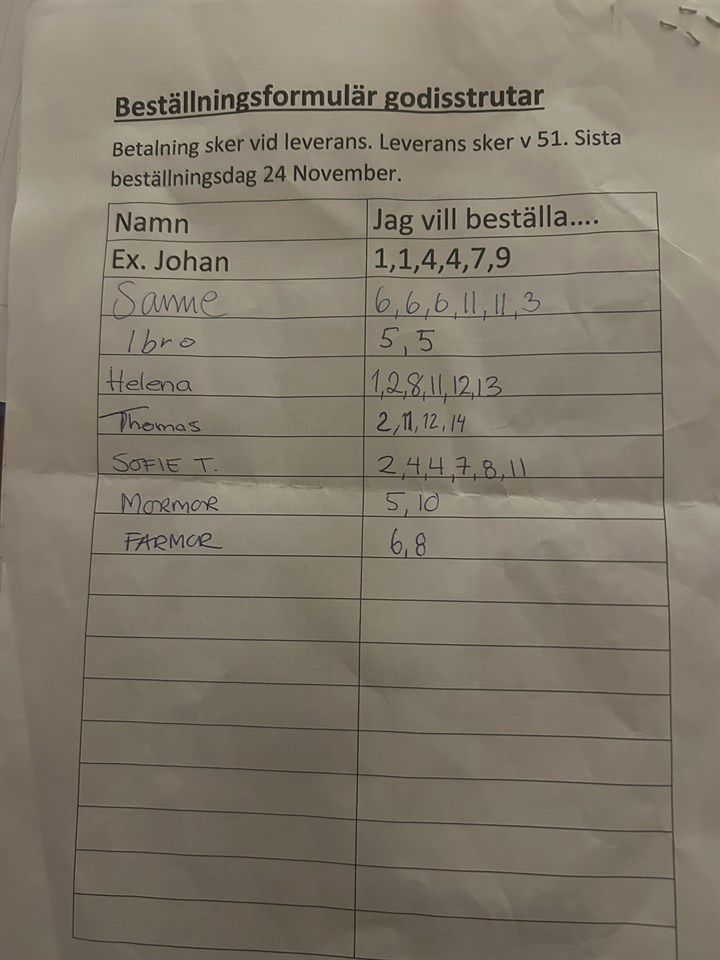 Beställningsformulär godisstrutar
Betalning sker vid leverans. Leverans sker v 51. Sista
beställningsdag 24 November.
Namn Jag vill beställa....
Ex. Johan 1,1,4,4,7,9
Sanne 6,6,6,11,11,3
Ibro 5,5
Helena 1,2,8,11,12,13
Thomas 2,11,12,14
SOFIE T. 2,4,4,7,8,11
MORMOR 5,10
FARMOR 6,8